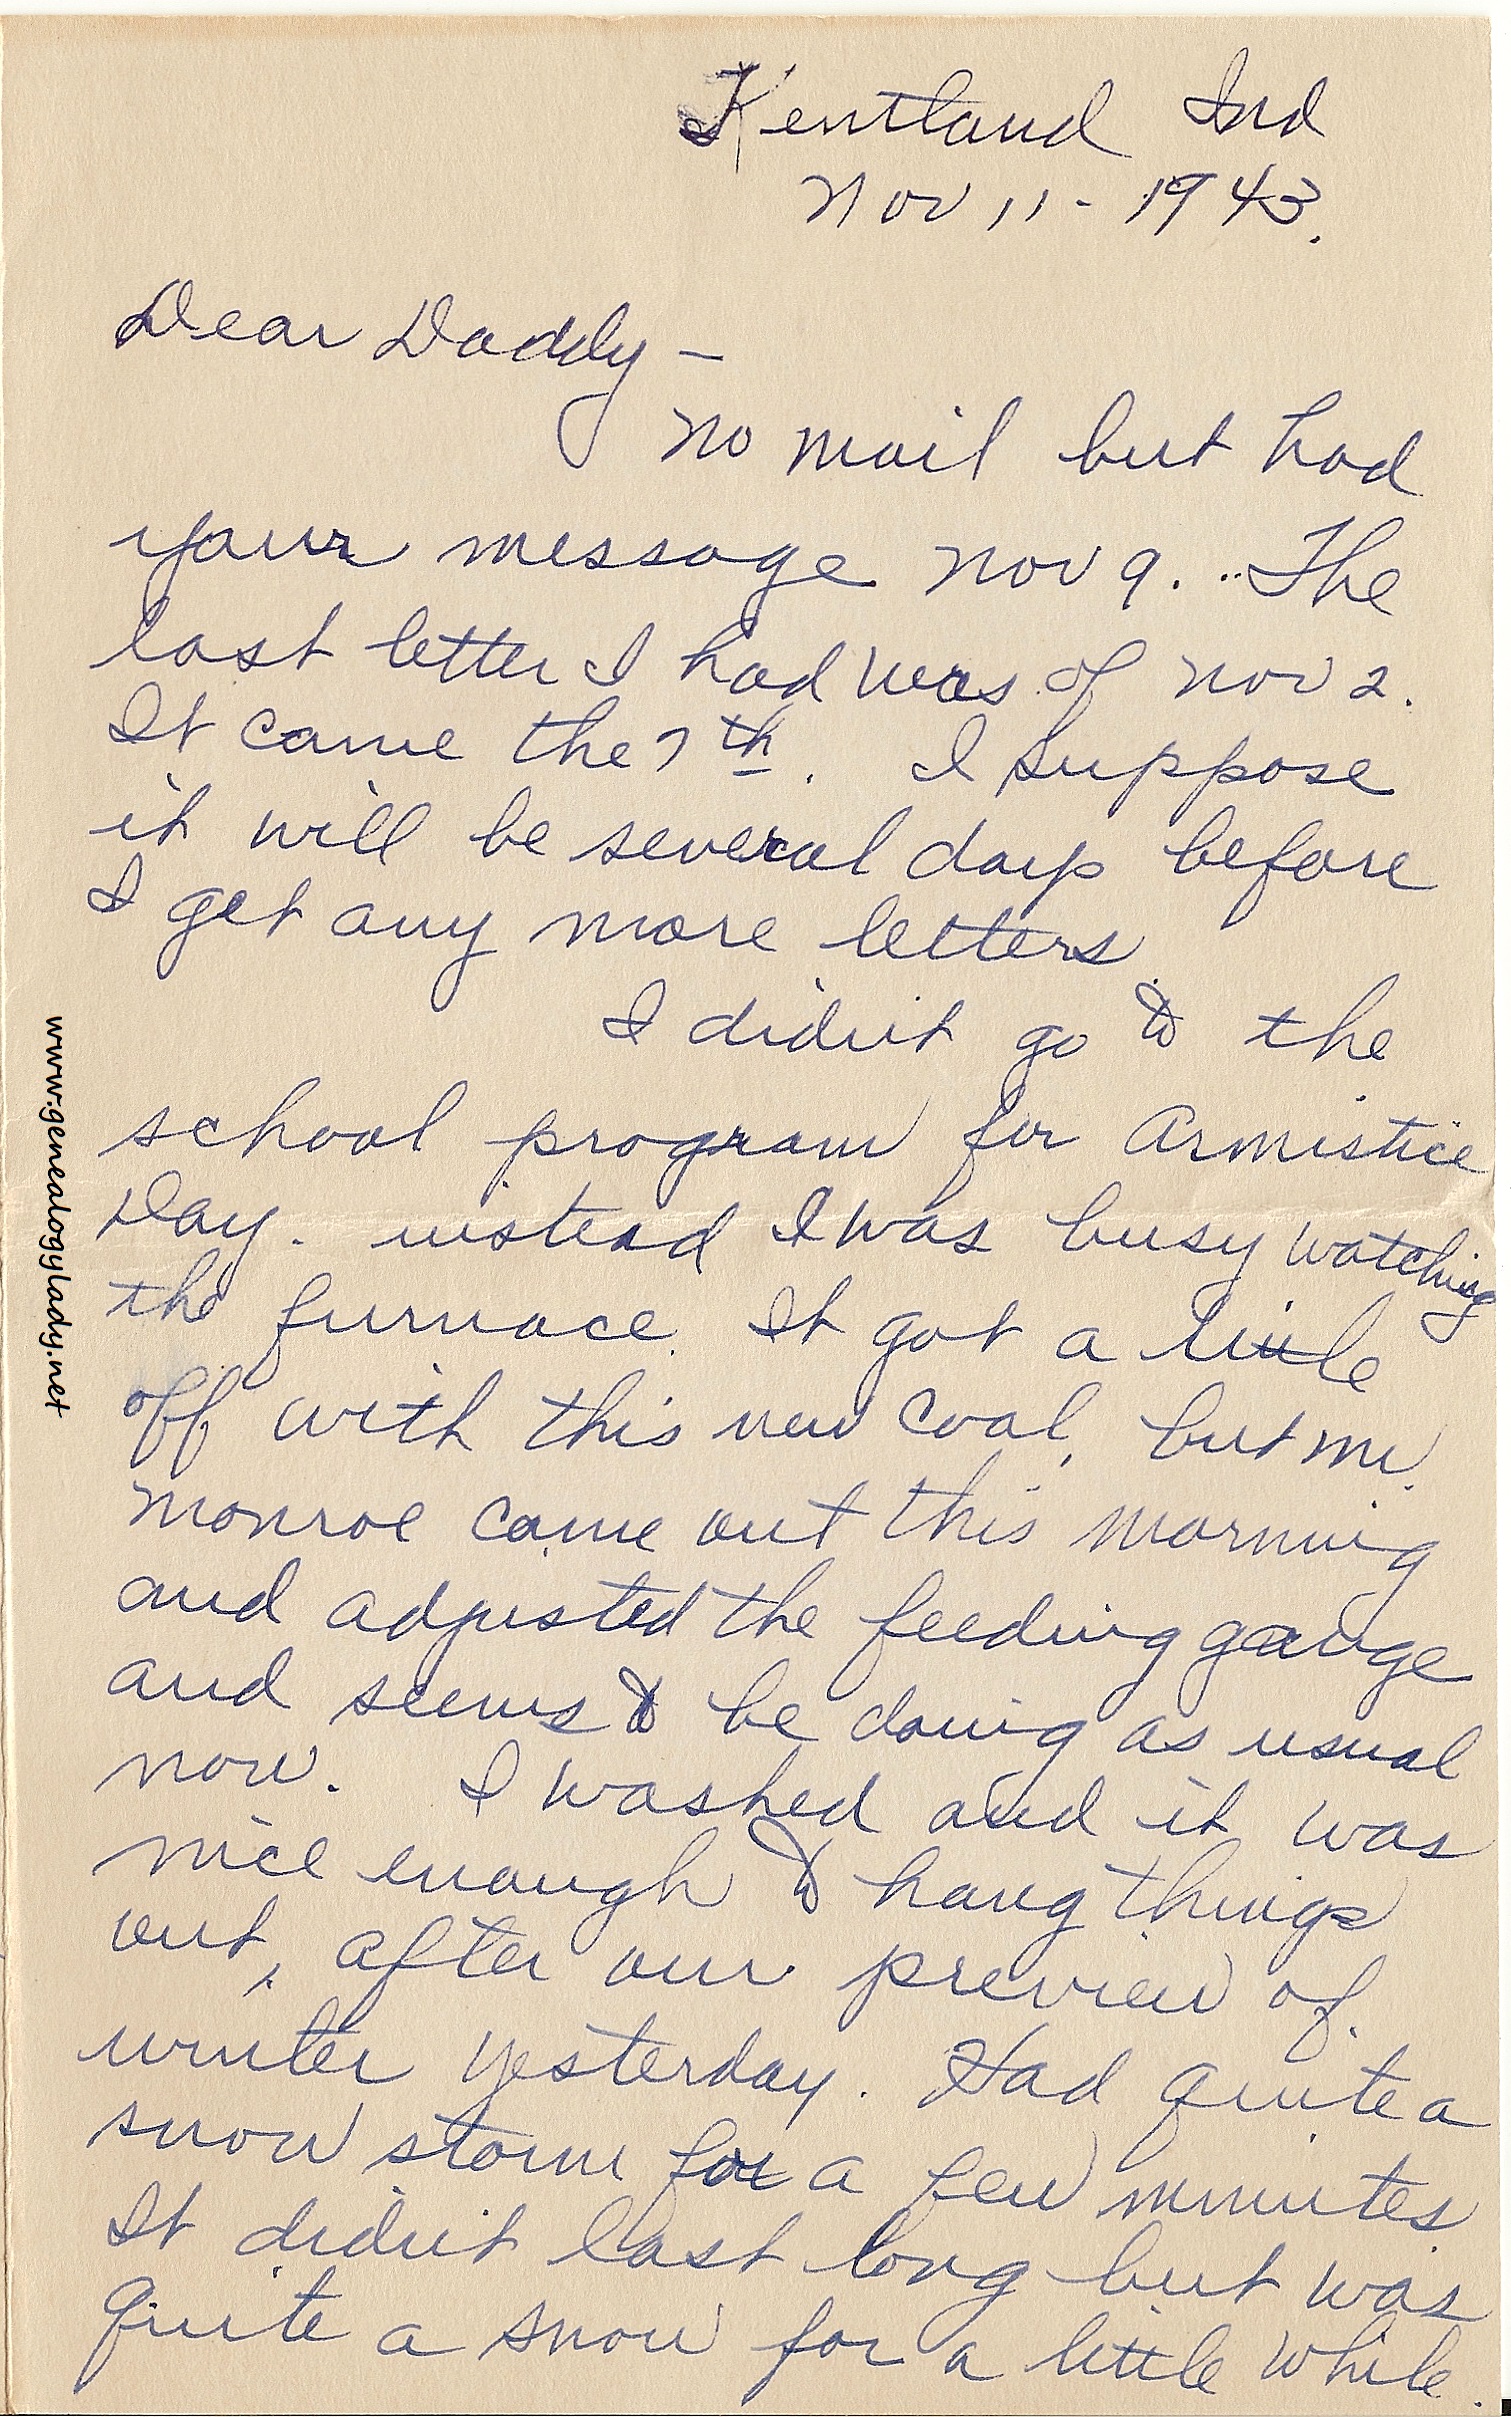 Kentland Ind
Nov 11 - 1943.
Dear Daddy -
No mail but had
your message Nov 9. The
last letter I had was of Nov 2.
It came the 7th. I suppose
it will be several days before
I get any more letters.
I didn't go to the
school program for Armistice
Day. instead I was busy watching
the furnace. It got a little
off with this new coal, but Mr.
Monroe came out this morning
and adjusted the feeding gauge
and seems to be doing as usual
now. I washed and it was
nice enough to hang things
out, after our preview of
winter yesterday. Had quite a
snow storm for a few minutes.
It didn't last long but was
quite a snow for a little while.
www.genealogylady.net